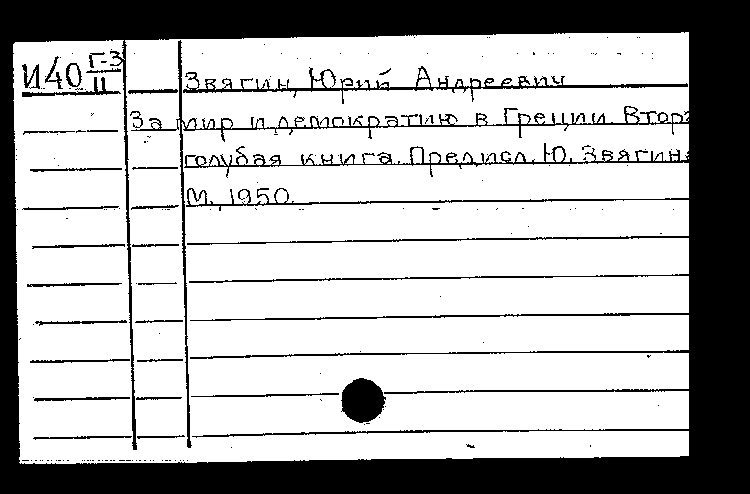 И40 Г-3/II
Звягин, Юрий Андреевич
За мир и демократию в Греции. Втора
голубая книга. Предисл. Ю. Звягина
М., 1950.